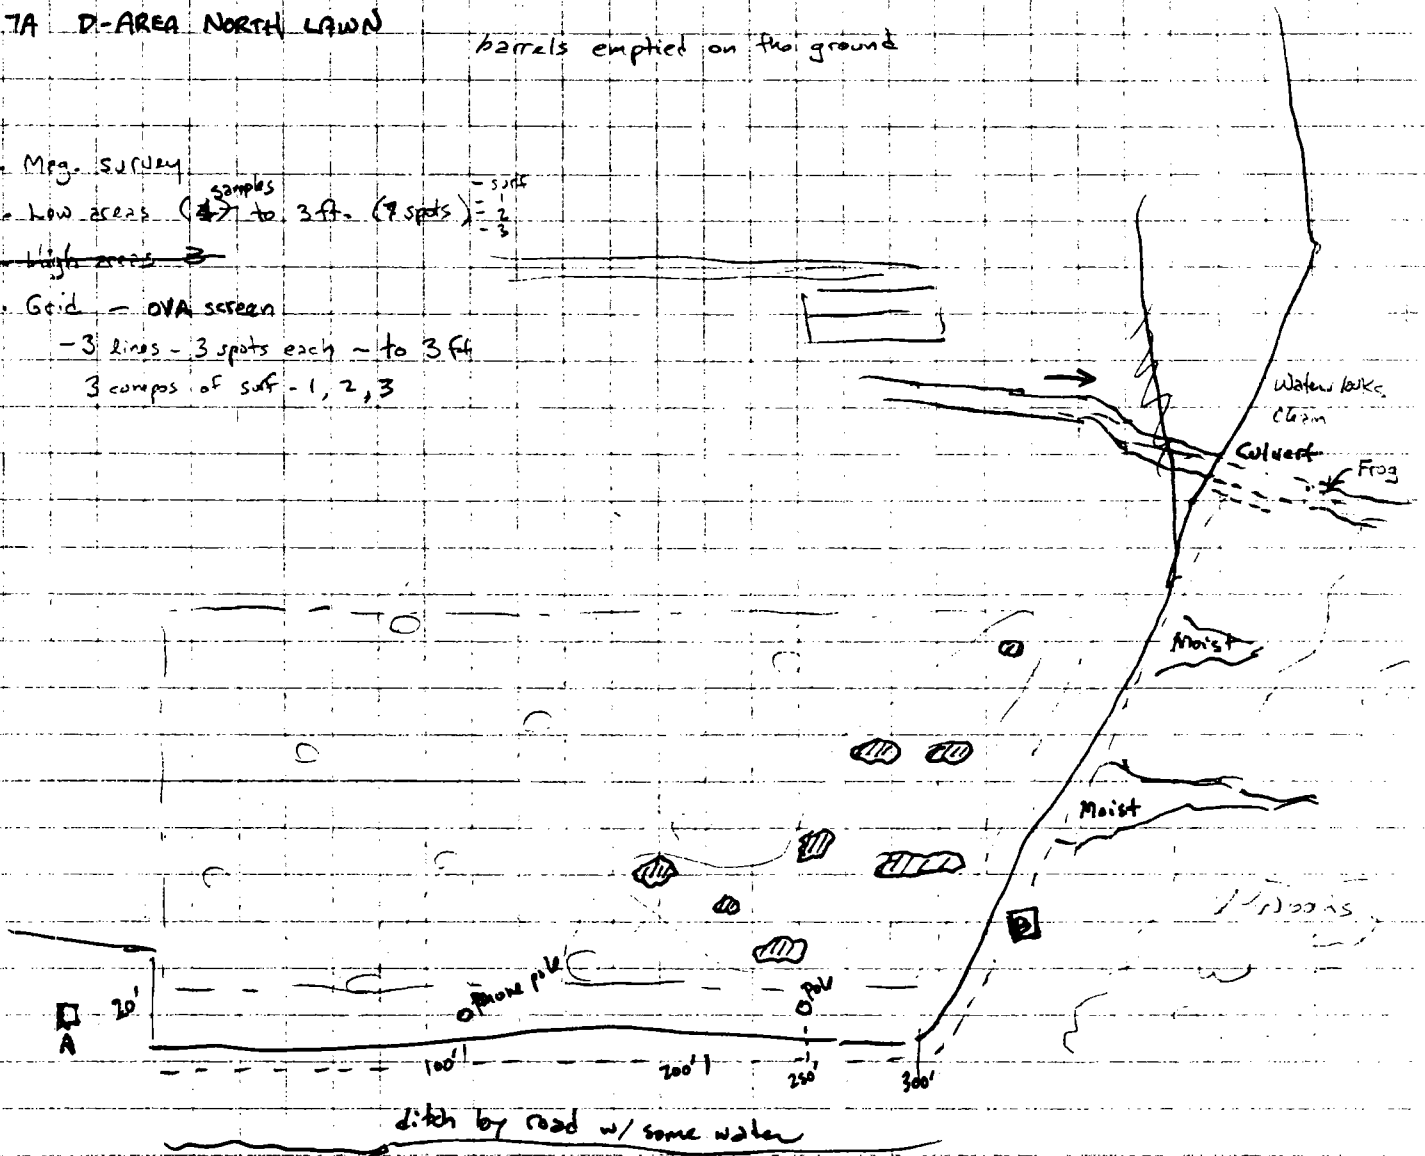 7A D-AREA NORTH LAWN
barrels emptied on the ground
Mag. survey
samples
- surf
- 1
- 2
- 3
Low areas (4) to 3 ft. (7 spots)
High areas 3
Grid - OVA screen
- 3 lines - 3 spots each - to 3 ft
3 compos of surf - 1, 2, 3
Water looks
clean
Culvert
Frog
Moist
Moist
B
Phone pole
Pole
20'
A
100'
200'
250'
300'
ditch by road w/ some water